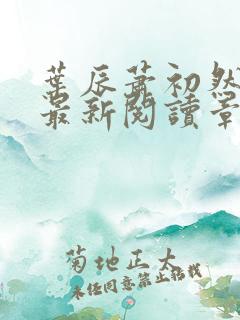 葉辰蕭初然
最新閱讀章
菊地正大
未经同意禁止转载